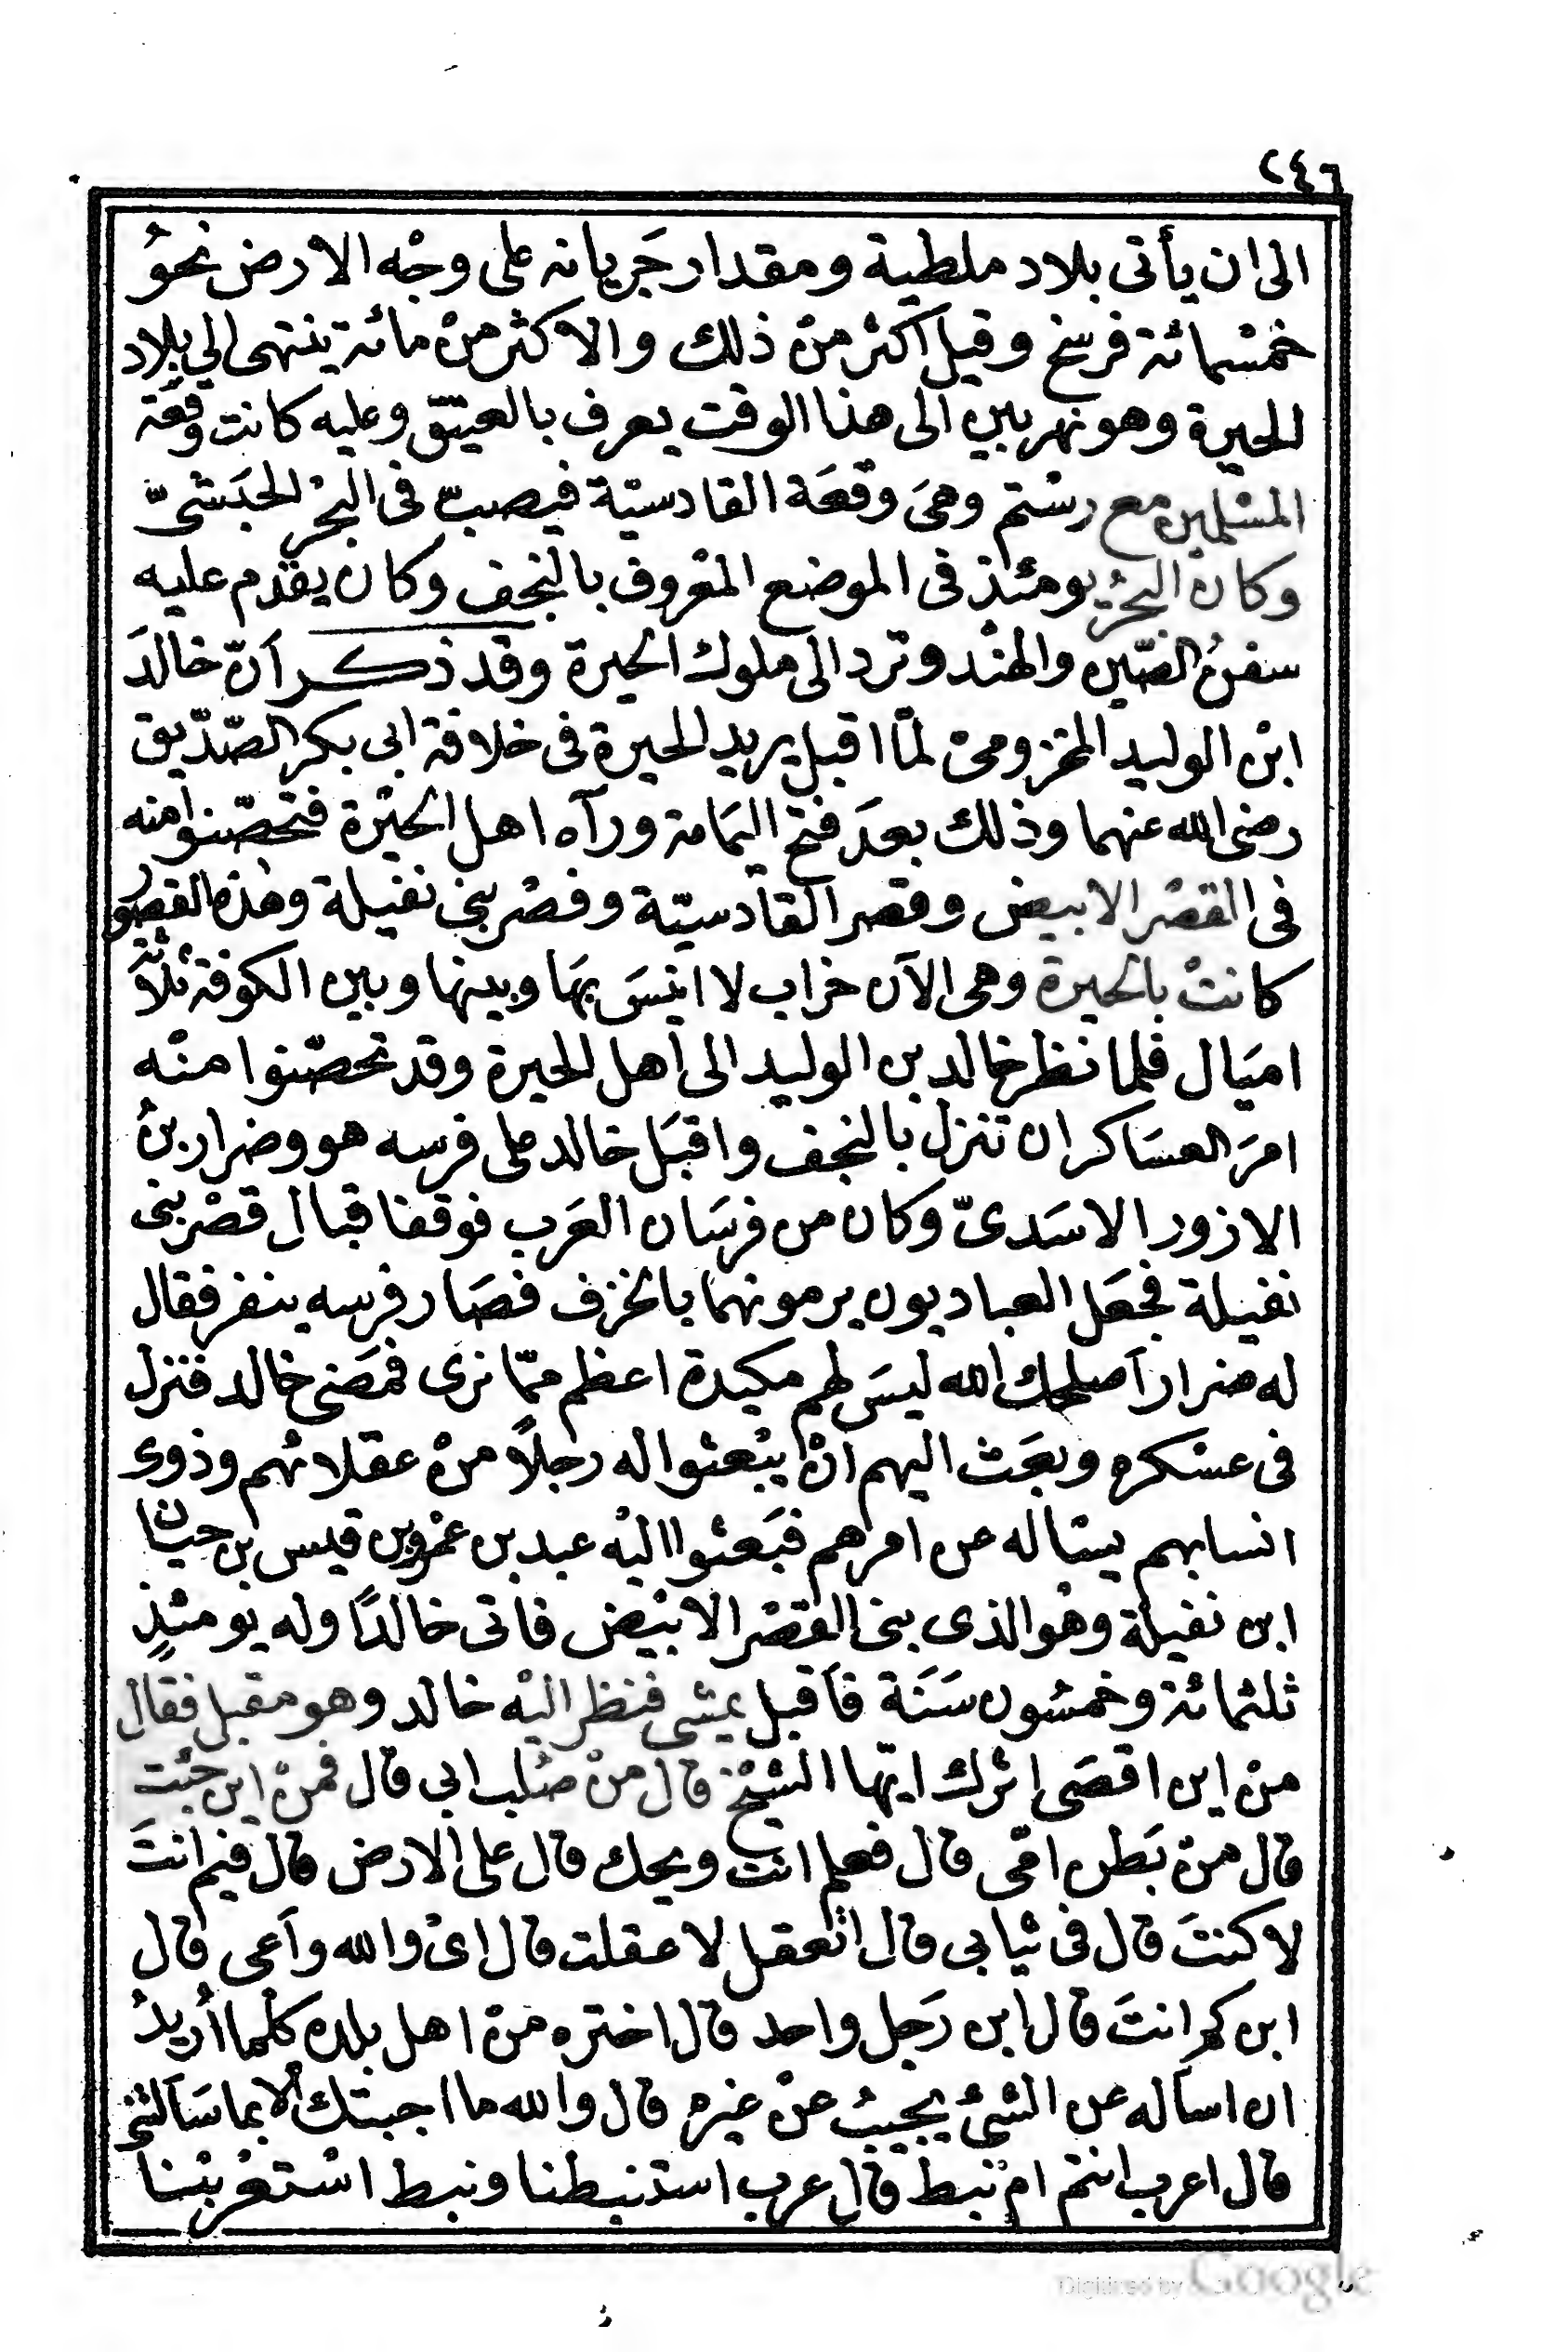 ٢٤٦
الى ان يأتى بلاد ملطية ومقدار جَريانه على وجْه الارض نحوُ
خمسْمائة فرسخ وقيل اكثر منْ ذلك والاكثر منْ مائة ينتهى الي بلاد
الحيرة وهو نهر بين الى هذا الوقت يعرف بالعيتق وعليه كانت وقعَة
المسْلمين مع رسْتم وهىَ وقعَة القادسيّة فيصبّ فى البحْر الحبَشىّ
وكان البحرُ يومئذ فى الموضع المعْروف بالنجف وكان يقدم عليه
سفنُ الصّين والهنْد وترد الى ملوك الحيرة وقد ذكر اَنّ خالدَ
ابنْ الوليد المخزومىْ لمّا اقبل يريد الحيرة فى خلافة ابى بكر الصّدّيق
رضى الله عنهما وذلك بعدَ فتح اليَمامة ورآه اهل الحيْرة فتحصّنوا منه
فى القصْر الابيض وقصر القادسيّة وقصْر بنى نفيلة وهٰذه القصور
كانتْ بالحيرة وهى الآن خراب لا انيسَ بهَا وبينها وبين الكوفة ثلاثة
اميَال فلما نظر خالد بن الوليد الى اهل الحيرة وقد تحصّنوا منْه
امرَ العسَاكر ان تنزل بالنجف واقبَل خالد على فرسه هو وضرار بنُ
الازور الاسَدىّ وكان من فرسَان العَرب فوقفا قبال قصْر بنى
نفيلة فجعَل العباديون يرمونهما بالخزف فصَار فرسه ينفر فقال
له ضرار اَصلحك الله ليسَ لهم مكيدة اعظم ممّا نرى فمَضى خالد فنزل
فى عسْكره وبعَث اليهم اَنْ يبْعثوا له رجلاً منْ عقلائهم وذوى
انسابهم يسْاله عن امرهم فبَعثوا اليْه عبد بن عمْرو بن قيس بن حيان
ابن نفيلة وهُو الذى بنى القصْر الابْيض فاتى خالدًا وله يومئذٍ
ثلثمائة وخمسُون سَنَة فاَقبل يمشى فنظر اليْه خالد وهو مقبل فقال
منْ اين اقصَى اثرك ايّها الشيْخ قال منْ صُلب ابى قال فمنْ اين جئت
قال منْ بَطن امّى قال فعلم انت ويحك قال على الارض قال فيم انتَ
لا كنتَ قال فى ثيابى قال اتعقل لا عقلت قال اىْ والله واَعى قال
ابن كم انتَ قال ابن رَجل واحد قال اختره منْ اهل بلده كلما اُريدُ
ان اسأله عن الشىْ يجيبُ عنْ غيره قال والله ما اجبتك الا بما سَاَلتنى
قال اعرب انتم ام نبط قال عرب استنبطنا ونبط اسْتعْربْنا
Digitized by Google